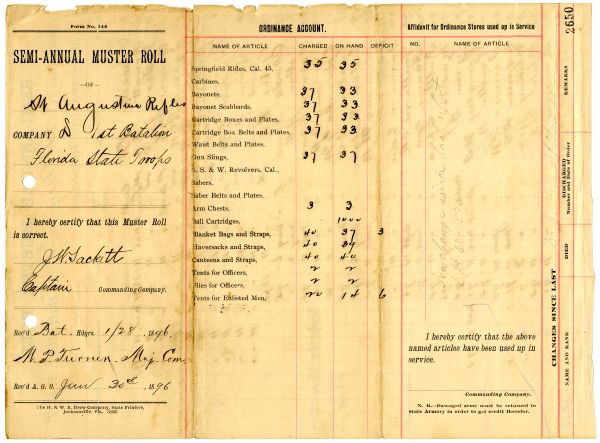 Form No. 148
SEMI-ANNUAL MUSTER ROLL
—OF—
St Augustine Rifles
COMPANY D 1st Batalion
Florida State Troops
I hereby certify that this Muster Roll
is correct.
Captain
Commanding Company.
Rec'd Bat. Hdqrs. 1/28 1896.
W. P. Turner, Maj. Com
Rec'd A. G. O. Jan 30th 1896
The H. & W. B. Drew Company, State Printers,
Jacksonville, Fla.
ORDINANCE ACCOUNT.
NAME OF ARTICLE CHARGED ON HAND DEFICIT
Springfield Rifles, Cal. 45, 35 35
Carbines,
Bayonets, 37 33
Bayonet Scabbards, 37 33
Cartridge Boxes and Plates, 37 33
Cartridge Box Belts and Plates, 37 33
Waist Belts and Plates,
Gun Slings, 37 37
S. & W. Revolvers, Cal.,
Sabers,
Saber Belts and Plates,
Arm Chests, 3 3
Ball Cartridges, 1000
Blanket Bags and Straps, 40 37 3
Haversacks and Straps, 40 39
Canteens and Straps, 40 40
Tents for Officers, 2 2
Flies for Officers, 2 2
Tents for Enlisted Men, 20 14 6
Affidavit for Ordinance Stores used up in Service
NO. NAME OF ARTICLE
No change since
I hereby certify that the above
named articles have been used up in
service.
Commanding Company.
N. B.—Damaged arms must be returned to
State Armory in order to get credit therefor.
2650
CHANGES SINCE LAST
NAME AND RANK
DIED
DISCHARGED
Number and Date of Order
REMARKS